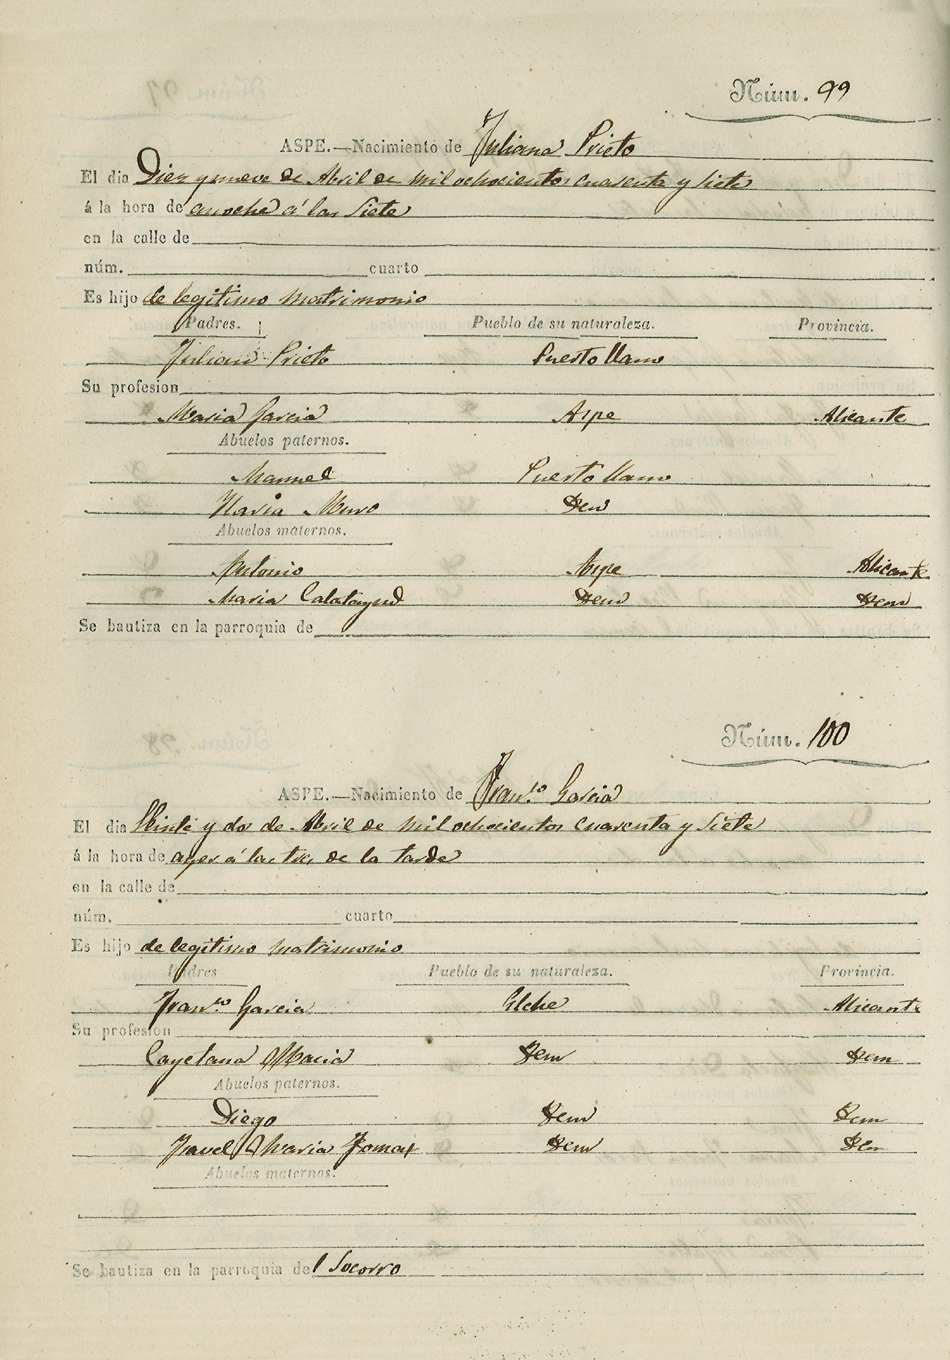 Núm. 99
ASPE.—Nacimiento de Juliana Prieto
El dia Diez y nueve de Abril de mil ochocientos cuarenta y siete
á la hora de anoche á las siete
en la calle de
núm. cuarto
Es hijo de legitimo matrimonio
Padres. Pueblo de su naturaleza. Provincia.
Julian Prieto Puerto llano
Su profesion
Maria Garcia Aspe Alicante
Abuelos paternos.
Manuel Puerto llano
Maria Muro Idem
Abuelos maternos.
Antonio Aspe Alicante
Maria Calatayud Idem Idem
Se bautiza en la parroquia de
Núm. 100
ASPE.—Nacimiento de Fran.co Garcia
El dia Veinte y dos de Abril de mil ochocientos cuarenta y siete
á la hora de ayer á las tres de la tarde
en la calle de
núm. cuarto
Es hijo de legitimo matrimonio
Padres Pueblo de su naturaleza. Provincia.
Fran.co Garcia Elche Alicante
Su profesion
Cayetana Macia Idem Idem
Abuelos paternos.
Diego Idem Idem
Maria Idem Idem
Abuelos maternos.
Se bautiza en la parroquia del Socorro